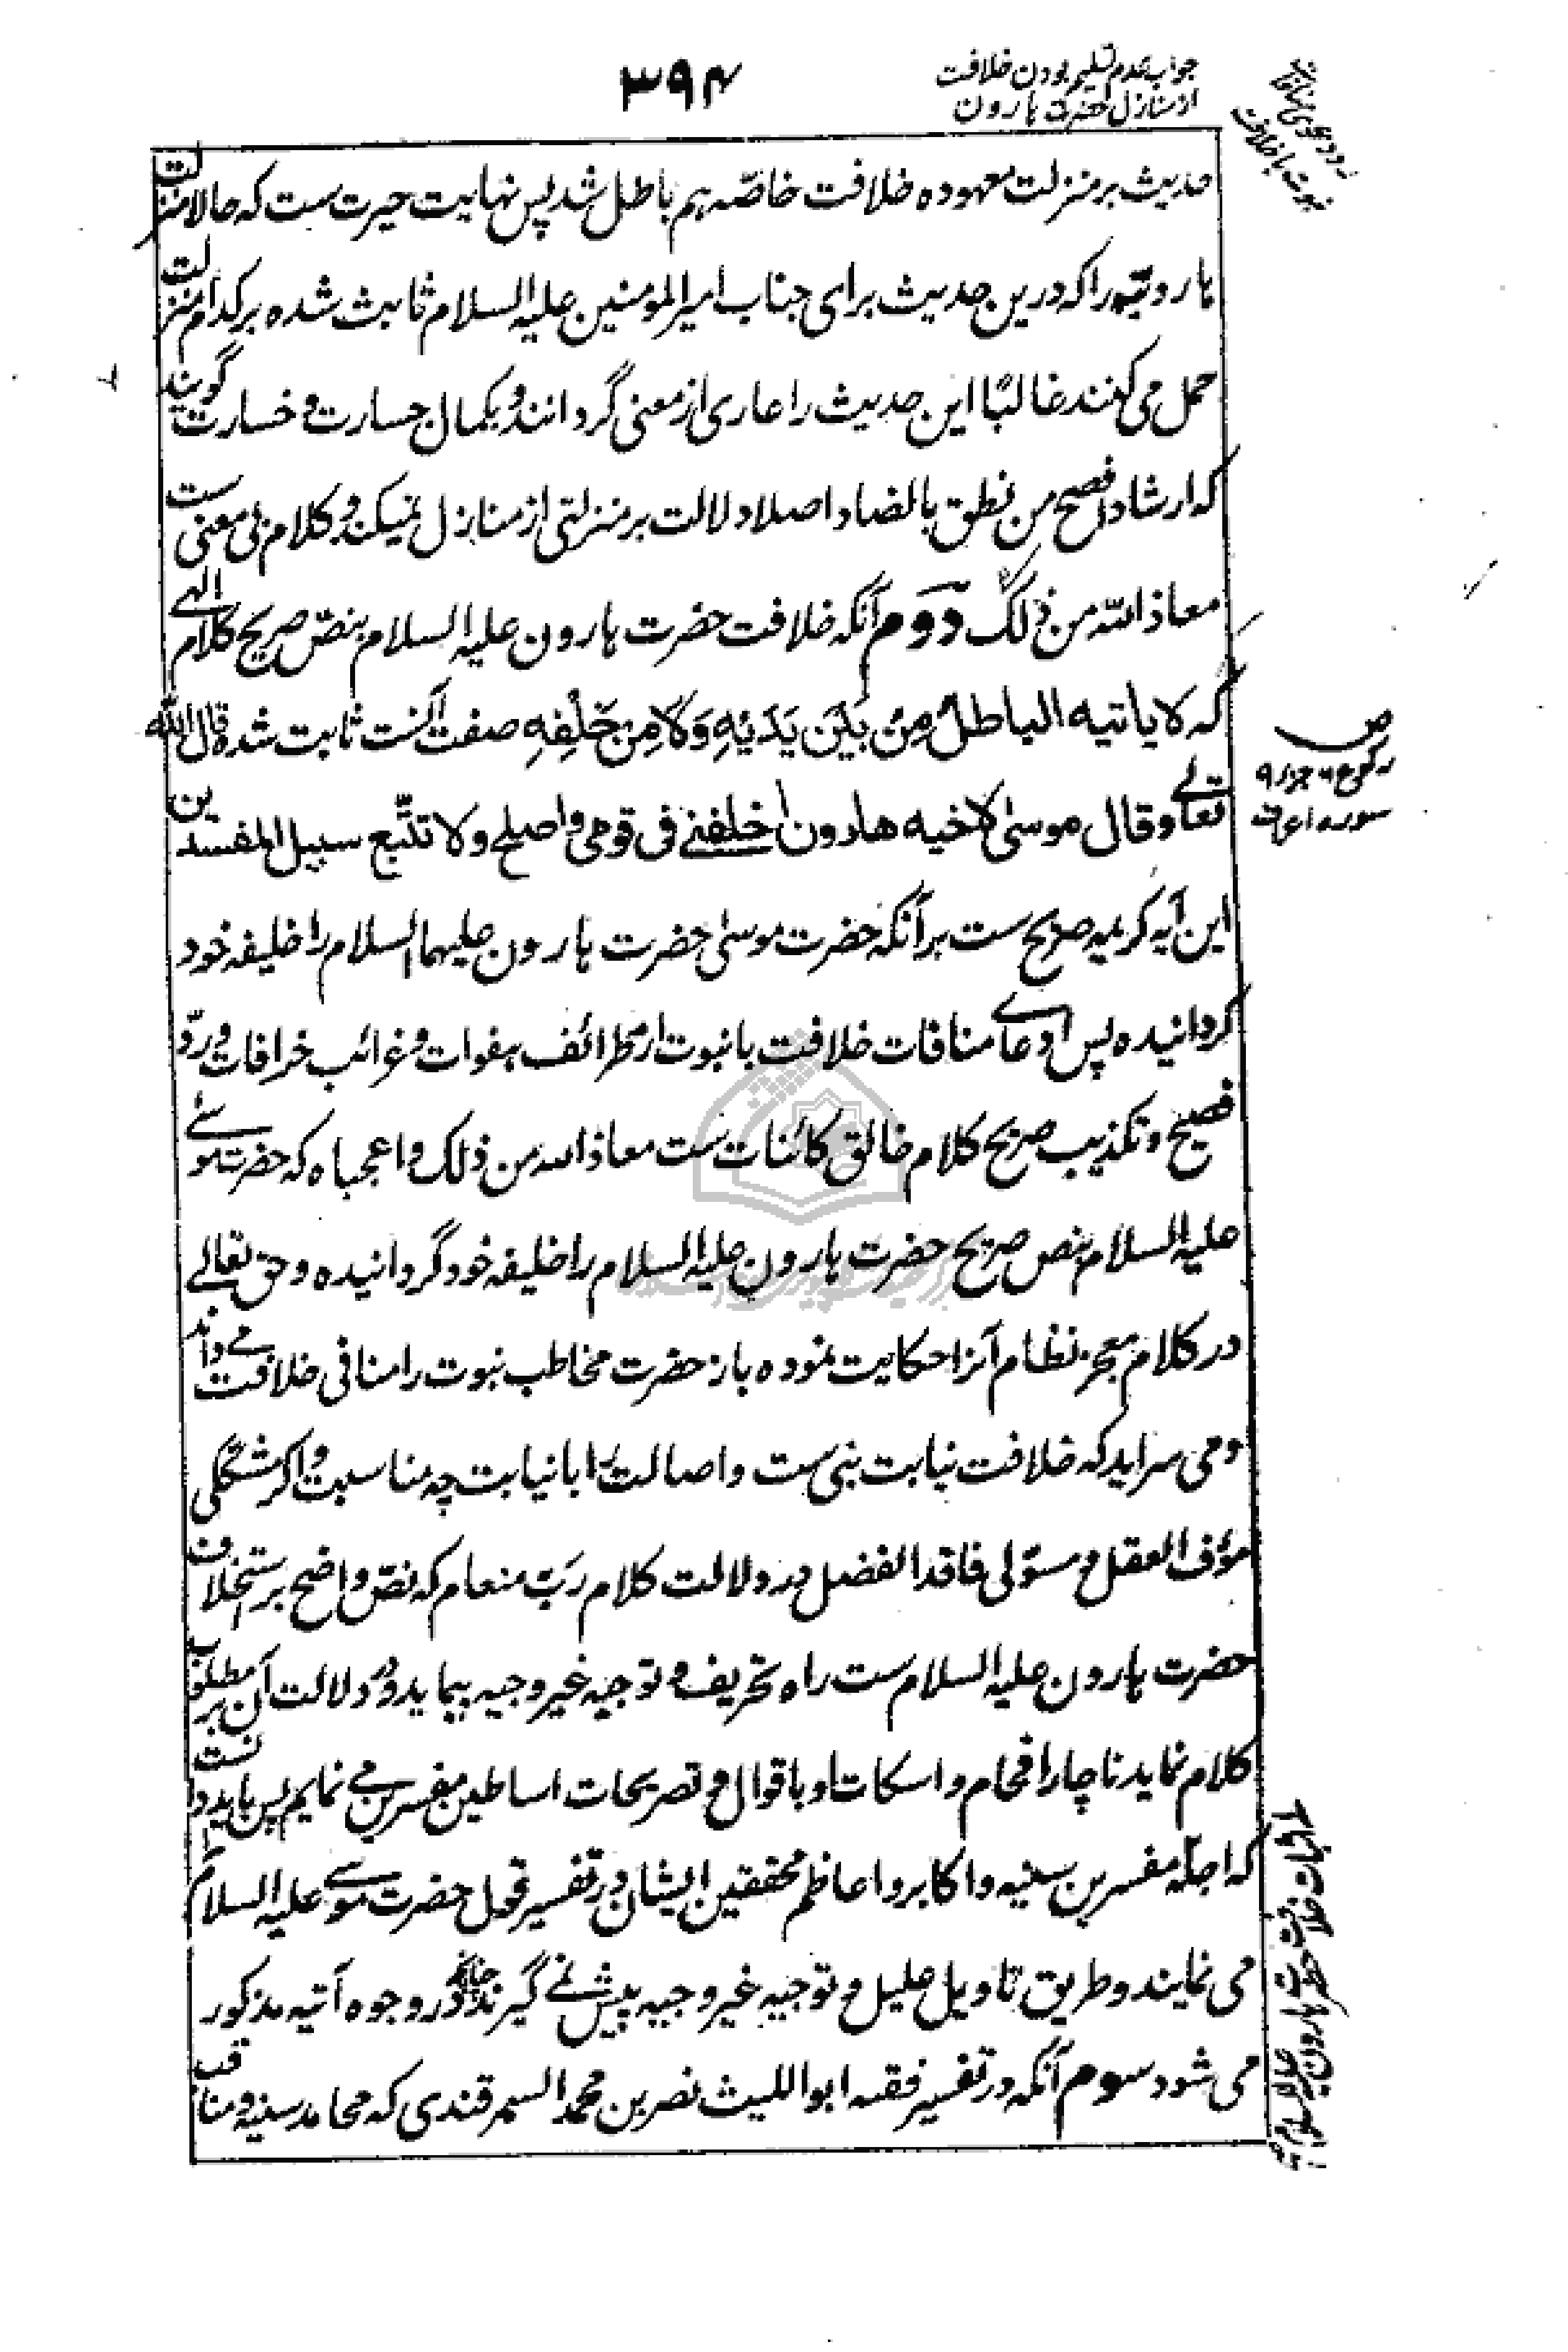 ۳۹۴
جواب عدم تسلیم بودن خلافت
از منازل حضرت هارون
رد دعوی منافات
نبوت با خلافت
حدیث بر منزلت معهوده خلافت خاصّه هم باطل شد پس نهایت حیرت ست که حالا منزلت
هارونیه را که درین حدیث برای جناب امیرالمومنین علیه السلام ثابت شده بر کدام منزلت
حمل می کنند غالبًا این حدیث را عاری از معنی گردانند و بکمال جسارت و خسارت گویند
که ارشاد افصح من نطق بالضاد اصلا دلالت بر منزلتی از منازل نمیکند و کلام بی معنی ست
معاذ الله من ذلک دوم آنکه خلافت حضرت هارون علیه السلام بنص صریح کلام الهی
که لا یاتیه الباطلُ مِنْ بَیْنِ یَدَیْهِ وَلَا مِنْ خَلْفِهِ صفت آنست ثابت شده قال الله
تعالی وقال موسیٰ لاخیه هارون اخلفنی فی قومی و اصلح ولا تتّبع سبیل المفسدین
ص
رکوع ۶ جزو ۹
سوره اعراف
این آیه کریمه صریح ست بر آنکه حضرت موسیٰ حضرت هارون علیهما السلام را خلیفه خود
گردانیده پس ادعای منافات خلافت با نبوت از طرائف هفوات و غرائب خرافات و ردّ
فصیح و تکذیب صریح کلام خالق کائنات ست معاذ الله من ذلک واعجباه که حضرت موسی
علیه السلام بنص صریح حضرت هارون علیه السلام را خلیفه خود گردانیده و حق تعالی
در کلام معجز نظام آنرا حکایت نموده باز حضرت مخاطب نبوت را منافی خلافت می داند
و می سراید که خلافت نیابت نبی ست و اصالت را با نیابت چه مناسبت و اگر متشککی
مؤف العقل و مسؤلی فاقد الفضل در دلالت کلام ربّ منعام که نصّ واضح بر استخلاف
حضرت هارون علیه السلام ست راه تحریف و توجیه غیر وجیه پیماید و در دلالت آن بر مطلوب
کلام نماید ناچار افحام و اسکات او باقوال و تصریحات اساطین مفسرین می نمایم پس باید دانست
که اجلّه مفسرین سنیه و اکابر و اعاظم محققین ایشان در تفسیر قول حضرت موسی علیه السلام
می نمایند و طریق تاویل علیل و توجیه غیر وجیه پیش نمی گیرند چنانکه در وجوه آتیه مذکور
می شود سوم آنکه در تفسیر فقیه ابو اللیث نصر بن محمد السمرقندی که محامد سنیه و مناقب
اثبات خلافت حضرت هارون علیه السلام